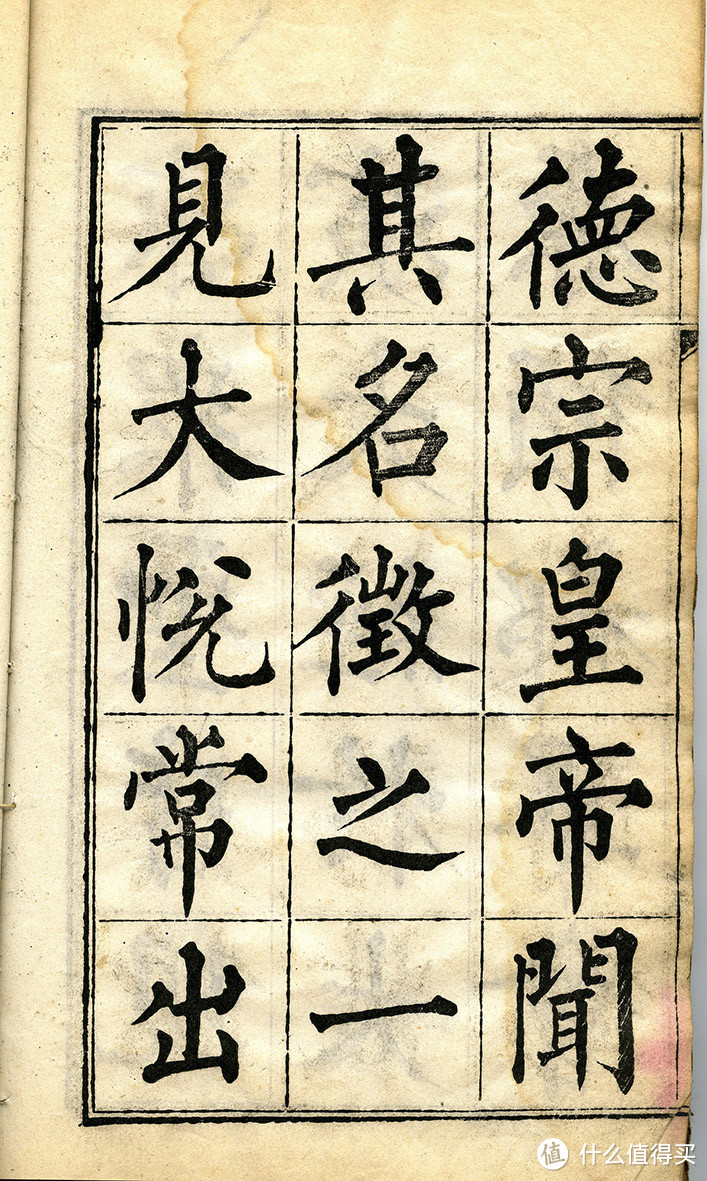 德宗皇帝聞
其名徵之一
見大悅常出
值 什么值得买